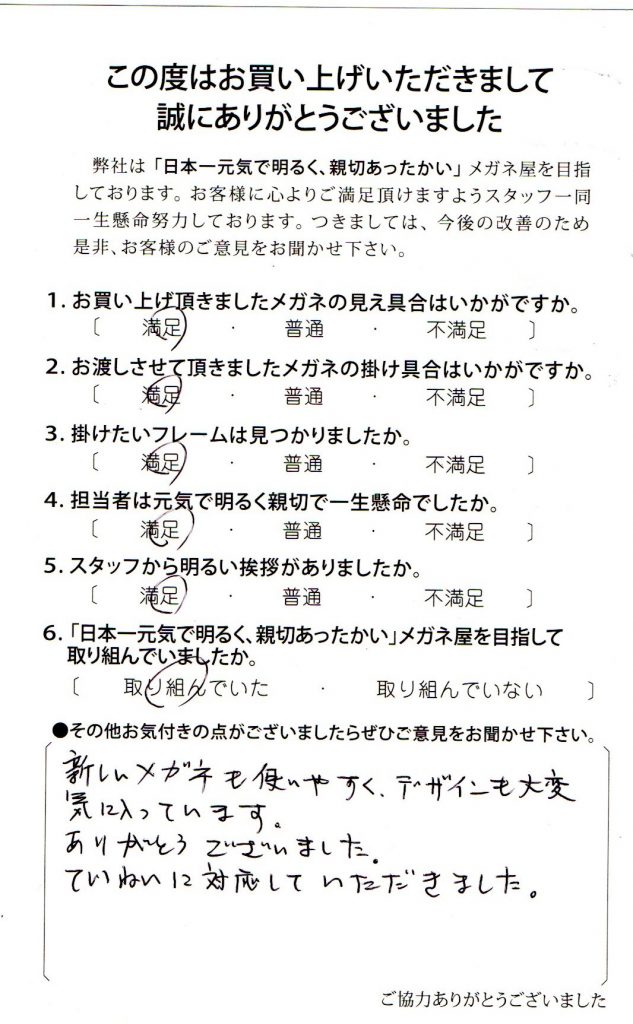 この度はお買い上げいただきまして
誠にありがとうございました
弊社は「日本一元気で明るく、親切あったかい」メガネ屋を目指
しております。お客様に心よりご満足頂けますようスタッフ一同
一生懸命努力しております。つきましては、今後の改善のため
是非、お客様のご意見をお聞かせ下さい。
1. お買い上げ頂きましたメガネの見え具合はいかがですか。
〔 満足 ・ 普通 ・ 不満足 〕
2. お渡しさせて頂きましたメガネの掛け具合はいかがですか。
〔 満足 ・ 普通 ・ 不満足 〕
3. 掛けたいフレームは見つかりましたか。
〔 満足 ・ 普通 ・ 不満足 〕
4. 担当者は元気で明るく親切で一生懸命でしたか。
〔 満足 ・ 普通 ・ 不満足 〕
5. スタッフから明るい挨拶がありましたか。
〔 満足 ・ 普通 ・ 不満足 〕
6.「日本一元気で明るく、親切あったかい」メガネ屋を目指して
取り組んでいましたか。
〔 取り組んでいた ・ 取り組んでいない 〕
●その他お気付きの点がございましたらぜひご意見をお聞かせ下さい。
新しいメガネも使いやすく、デザインも大変
気に入っています。
ありがとうございました。
ていねいに対応していただきました。
ご協力ありがとうございました